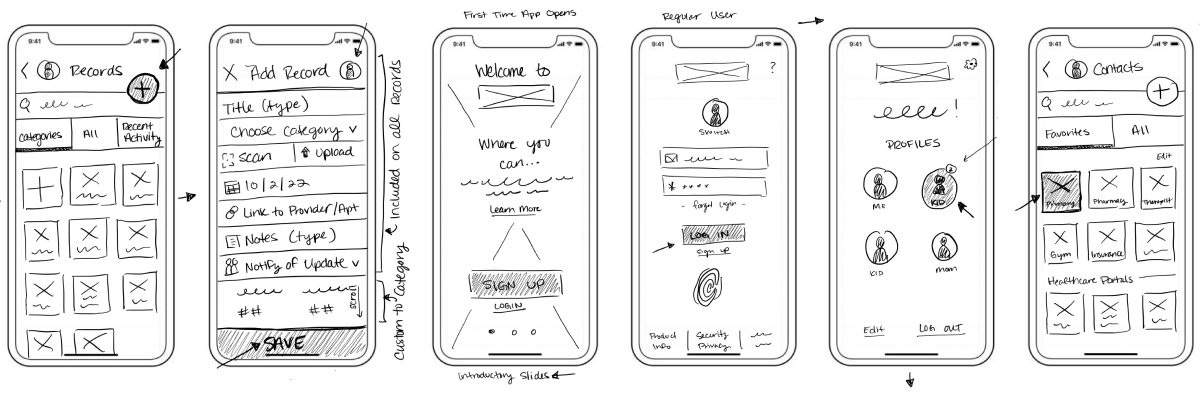 9:41
Records
+
Categories
All
Recent Activity
9:41
X Add Record
Title (type)
Choose Category v
Scan
Upload
10/2/22
Link to Provider/Apt
Notes (type)
Notify of Update v
##
##
scroll
SAVE
Included on all Records
Custom to Category
First Time App Opens
9:41
Welcome to
Where you
can...
Learn More
SIGN UP
LOGIN
Introductory Slides
Regular User
9:41
?
Switch
* ****
- forgot login -
LOG IN
Sign up
Product
Info
Security
Privacy
9:41
!
PROFILES
ME
KID
2
KID
mom
Edit
LOG OUT
9:41
Contacts
+
Favorites
All
Edit
Primary
Pharmacy
Therapist
Gym
Insurance
Healthcare Portals